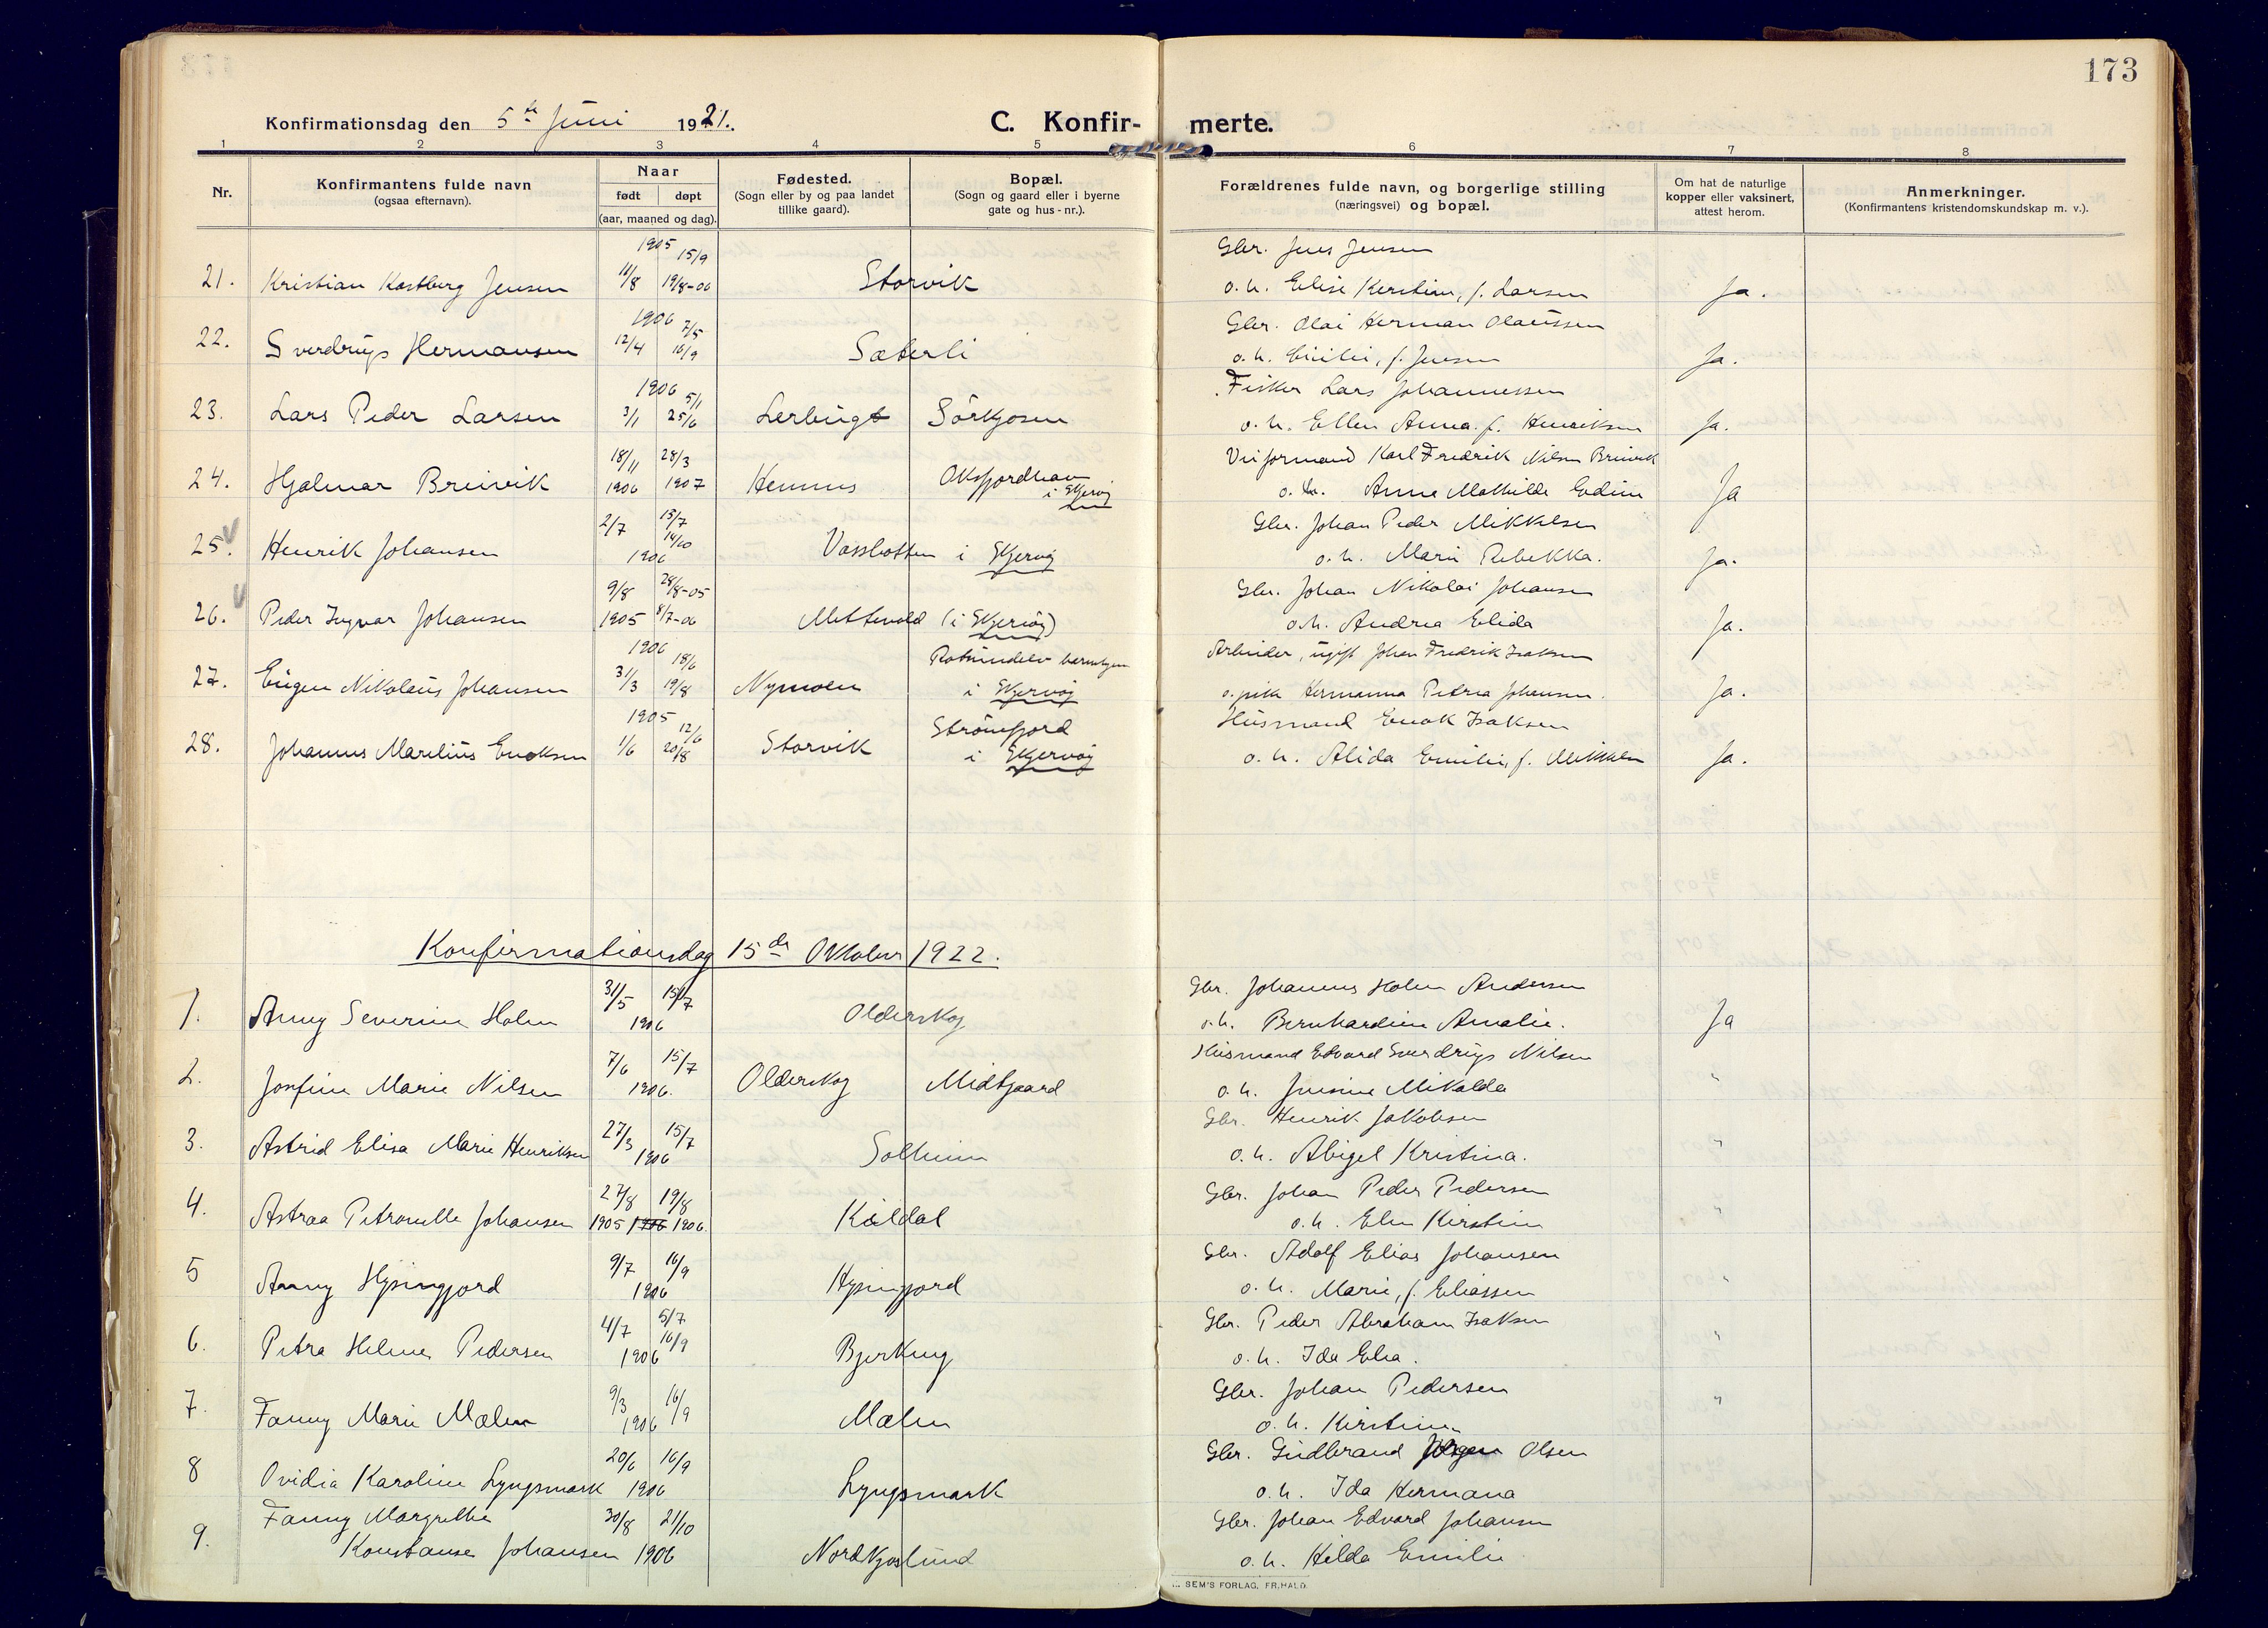 173
Konfirmationsdag den 5te Juni 1921.
C. Konfir- merte.
1 2 3 4 5 6 7 8
Nr.
Konfirmantens fulde navn
(ogsaa efternavn).
Naar
født døpt
(aar, maaned og dag).
Fødested.
(Sogn eller by og paa landet
tillike gaard).
Bopæl.
(Sogn og gaard eller i byerne
gate og hus-nr.).
Forældrenes fulde navn, og borgerlige stilling
(næringsvei) og bopæl.
Om hat de naturlige
kopper eller vaksinert,
attest herom.
Anmerkninger.
(Konfirmantens kristendomskundskap m. v.).
1905 15/9 Gbr. Jens Jensen
21. Kristian Kastberg Jensen 11/8 19/8-06 Storvik o. h. Elise Kerstine, f. Larsen Ja.
1906 7/5 Gbr. Olai Herman Olaussen
22. Sverdrup Hermansen 12/4 16/9 Sæterli o. h. Emilie, f. Jensen Ja.
1906 5/1 Fisker Lars Johannessen
23. Lars Peder Larsen 3/1 25/6 Lerbugt Sörkjosen o. h. Ellen Anna f. Henriksen Ja.
18/11 28/3 Veiformand Karl Fredrik Nilsen Breivik
24. Hjalmar Breivik 1906 1907 Hemnes Oksfjordhavn i Skjervøy o. h. Anna Mathilde Evdine Ja
2/7 15/7 14/10 Gbr. Johan Peder Mikkelsen
25. Henrik Johansen 1906 Vassbotten i Skjervøy o. h. Marie Rebekka. Ja.
9/8 28/8-05 Gbr. Johan Nikolai Johansen
26. Peder Ingvar Johansen 1905 8/7-06 Mettevold (i Skjervøy) o. h. Andrea Elida Ja.
1906 18/6 Rotsundelv barnehjem Arbeider, ugift Johan Fredrik Isaksen
27. Eugen Nikolaus Johansen 31/3 19/8 Nymoen i Skjervøy o. pike Hermanna Petrea Johansen. Ja.
1905 12/6 Strömfjord Husmand Enok Isaksen
28. Johannes Marelius Enoksen 1/6 20/8 Storvik i Skjervøy o. h. Alida Emilie, f. Mikkelsen Ja.
Konfirmationsdag 15de Oktober 1922.
31/5 15/7 Gbr. Johannes Holm Andersen
1. Anny Severine Holm 1906 Olderskog o. h. Bernhardine Amalie. Ja
7/6 15/7 Husmand Edvard Sverdrup Nilsen
2. Josefine Marie Nilsen 1906. Olderskog Midtgaard o. h. Jensine Mikalda "
27/3 15/7 Gbr. Henrik Jakobsen
3. Astrid Elisa Marie Henriksen 1906 Solheim o. h. Abigel Kristina. "
27/8 19/8 Gbr. Johan Peder Pedersen
4. Astraa Petronelle Johansen 1905 1906 1906. Kildal o. h. Elen Kirstine "
9/7 16/9 Gbr. Adolf Elias Johansen
5 Anny Hysingjord 1906 Hysingjord o. h. Marie, f. Eliassen "
4/7 5/7 16/9 Gbr. Peder Abraham Isaksen
6. Petra Helene Pedersen 1906 Bjerkeng o. h. Ida Elea. "
9/3 16/9 Gbr. Johan Pedersen
7. Fanny Marie Mælen 1906 Mælen o. h. Kirstine "
20/6 16/9 Gbr. Gudbrand Olsen
8 Ovidia Karoline Lyngsmark 1906 Lyngsmark o. h. Ida Hermana
Fanny Margrethe 30/8 21/10 Gbr. Johan Edvard Johansen
9. Konstanse Johansen 1906 Nordkjoslund o. h. Hilda Emilie
SEM'S FORLAG, FR.HALD.